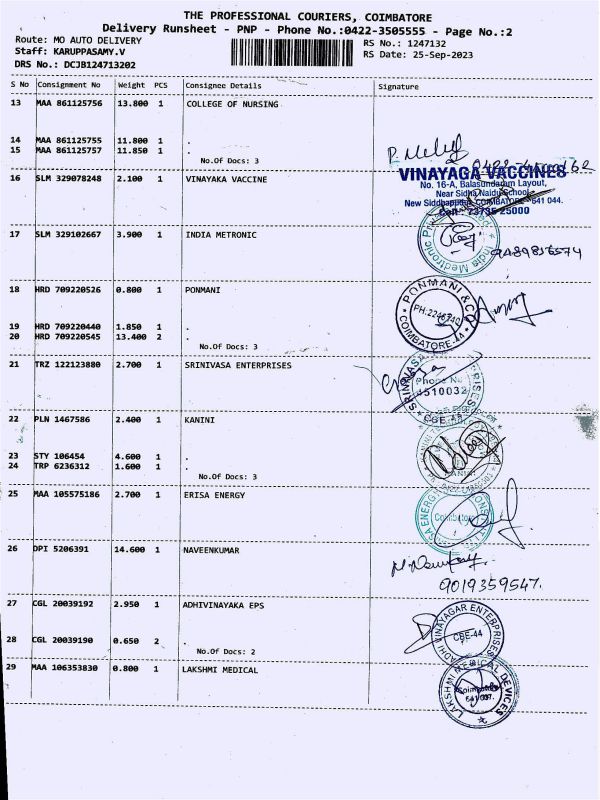 THE PROFESSIONAL COURIERS, COIMBATORE
Delivery Runsheet - PNP - Phone No.:0422-3505555 - Page No.:2
Route: MO AUTO DELIVERY RS No.: 1247132
Staff: KARUPPASAMY.V RS Date: 25-Sep-2023
DRS No.: DCJB124713202
S No Consignment No Weight PCS Consignee Details Signature
13 MAA 861125756 13.800 1 COLLEGE OF NURSING
14 MAA 861125755 11.800 1 .
15 MAA 861125757 11.850 1 .
No.Of Docs: 3
16 SLM 329078248 2.100 1 VINAYAKA VACCINE
VINAYAGA VACCINES
No. 16-A, Balasundaram Layout,
Near Sidha Naidu School,
New Siddhapudur, COIMBATORE - 641 044.
Cell: 73735 25000
17 SLM 329102667 3.900 1 INDIA METRONIC
India Medtronic
9489836574
18 HRD 709220526 0.800 1 PONMANI
PONMANI & CO
PH:2246340
COIMBATORE-44
19 HRD 709220440 1.850 1 .
20 HRD 709220545 13.400 2 .
No.Of Docs: 3
21 TRZ 122123880 2.700 1 SRINIVASA ENTERPRISES
Phone No
CBE
22 PLN 1467586 2.400 1 KANINI
23 STY 106454 4.600 1 .
24 TRP 6236312 1.600 1 .
No.Of Docs: 3
25 MAA 105575186 2.700 1 ERISA ENERGY
Coimbatore
26 DPI 5206391 14.600 1 NAVEENKUMAR
9019359547.
27 CGL 20039192 2.950 1 ADHIVINAYAKA EPS
ADHI VINAYAGAR ENTERPRISES
CBE-44
28 CGL 20039190 0.650 2 .
No.Of Docs: 2
29 MAA 106353830 0.800 1 LAKSHMI MEDICAL
LAKSHMI MEDICAL DEVICES
Coimbatore